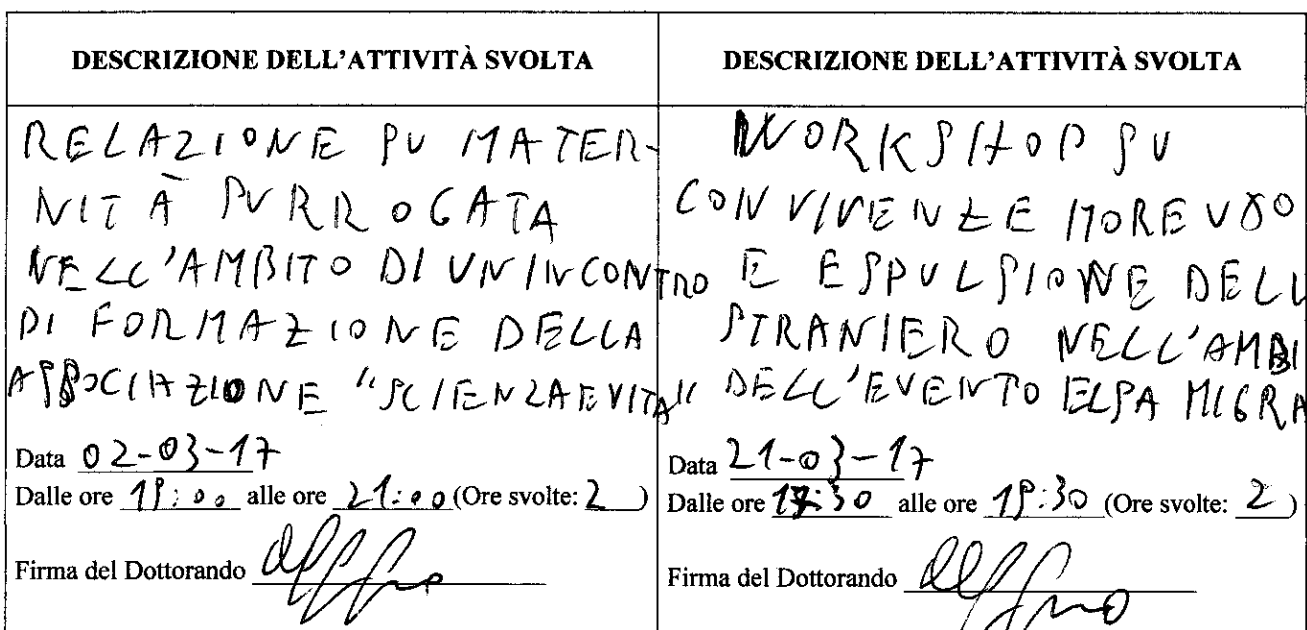 DESCRIZIONE DELL'ATTIVITÀ SVOLTA
RELAZIONE SU MATER-
NITÀ SURROGATA
NELL'AMBITO DI UN INCONTRO
DI FORMAZIONE DELLA
ASSOCIAZIONE "SCIENZAEVITA"
Data 02-03-17
Dalle ore 19:00 alle ore 21:00 (Ore svolte: 2)
Firma del Dottorando
DESCRIZIONE DELL'ATTIVITÀ SVOLTA
WORKSHOP SU
CONVIVENZE MORE UXO
E ESPULSIONE DELL
STRANIERO NELL'AMBI
DELL'EVENTO ELSA MIGRA
Data 21-03-17
Dalle ore 17:30 alle ore 19:30 (Ore svolte: 2)
Firma del Dottorando